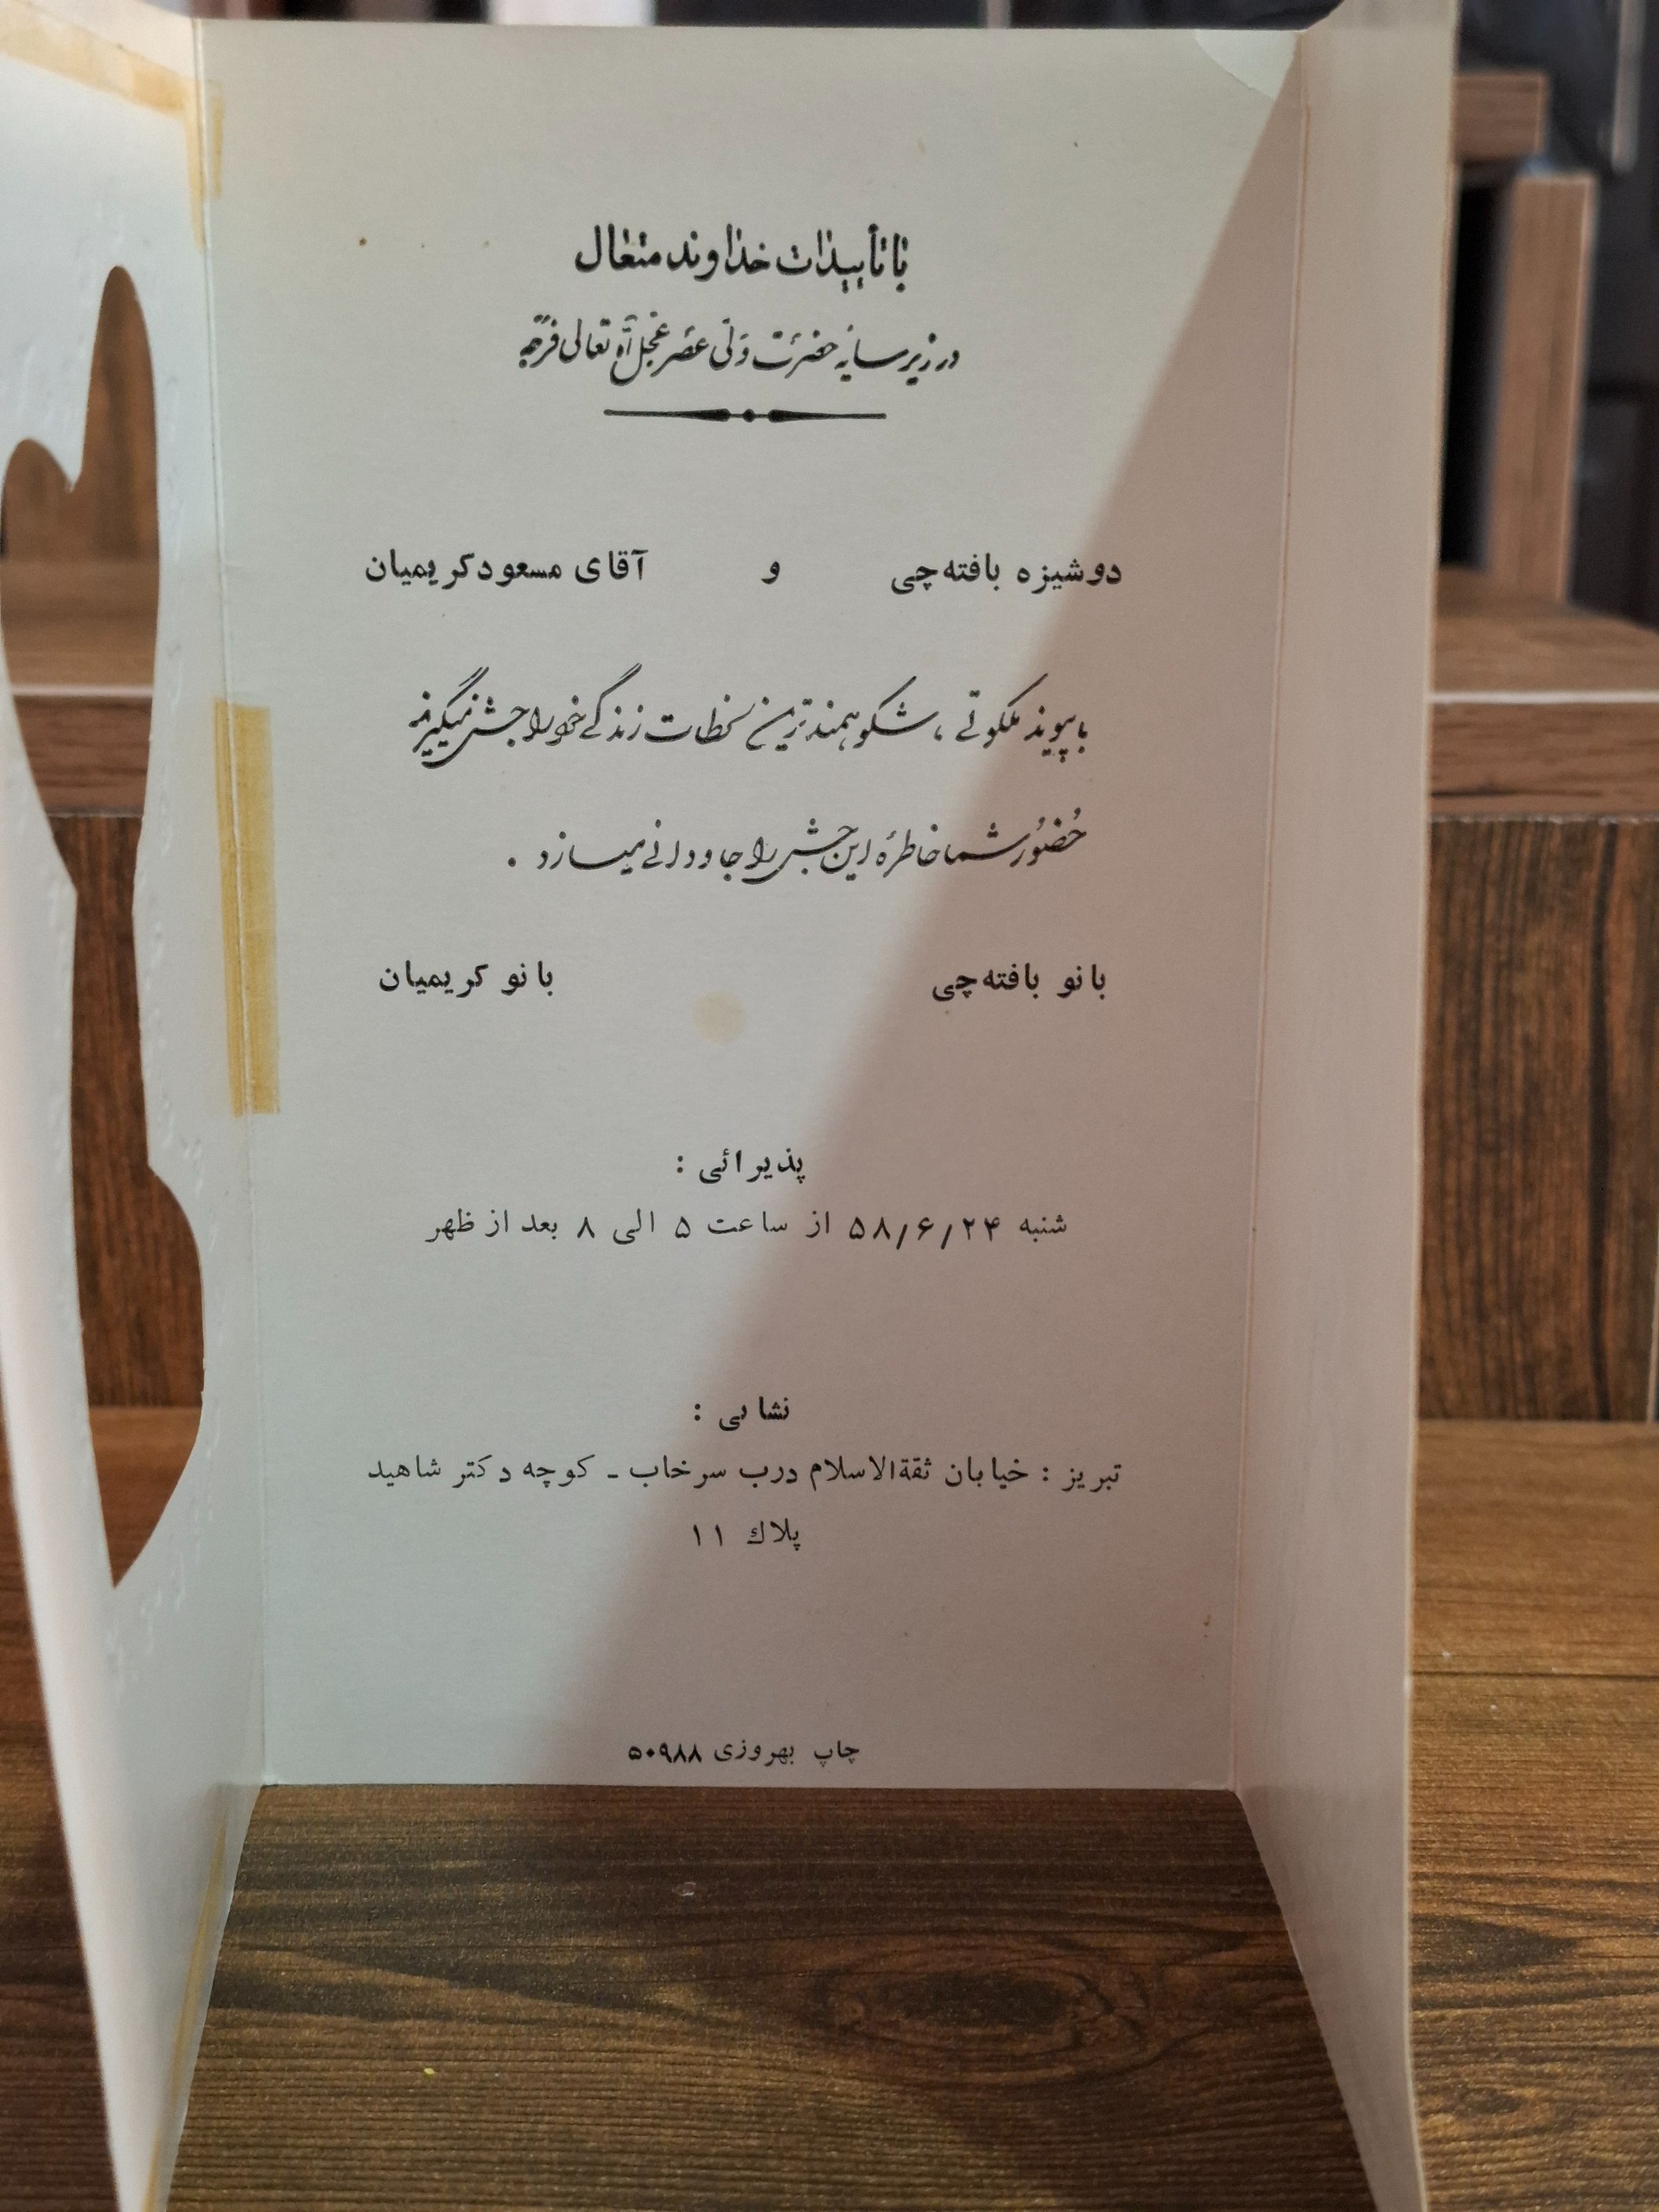 با تأییدات خداوند متعال
در زیر سایهٔ حضرت ولی عصر عجل الله تعالی فرجه
دوشیزه بافته‌چی و آقای مسعود کریمیان
با پیوند ملکوتی ، شکوهمندترین لحظات زندگی خود را جشن میگیرند
حضور شما خاطرهٔ این جشن را جاودانی میسازد .
بانو بافته‌چی بانو کریمیان
پذیرائی :
شنبه ۵۸/۶/۲۴ از ساعت ۵ الی ۸ بعد از ظهر
نشانی :
تبریز : خیابان ثقةالاسلام درب سرخاب ـ کوچه دکتر شاهید
پلاك ۱۱
چاپ بهروزی ۵۰۹۸۸